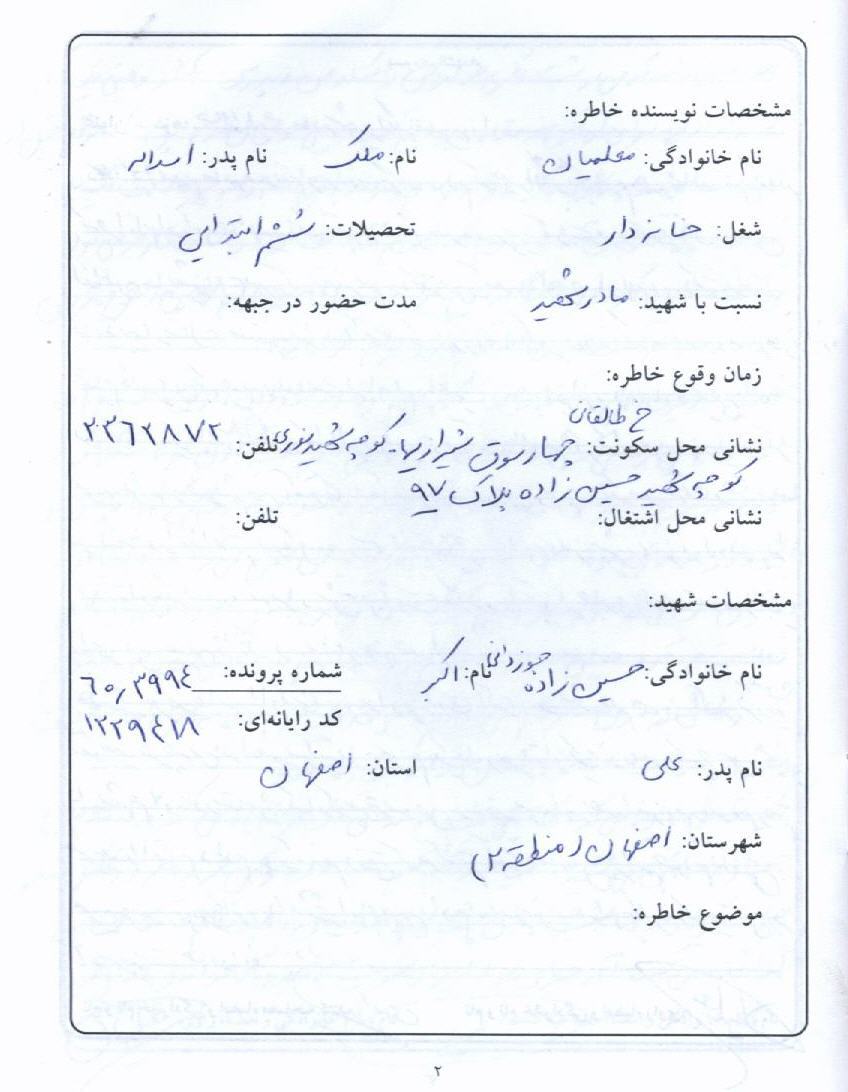 مشخصات نویسنده خاطره:
نام خانوادگی: معلمیان نام: ملک نام پدر: اسداله
شغل: خانه دار تحصیلات: ششم ابتدایی
نسبت با شهید: مادر شهید مدت حضور در جبهه:
زمان وقوع خاطره:
خ طالقانی
نشانی محل سکونت: چهارسوق شیرازیها - کوچه شهید نوری تلفن: ۲۳۶۲۸۷۲
کوچه شهید حسین زاده پلاک ۹۷
نشانی محل اشتغال: تلفن:
مشخصات شهید:
نام خانوادگی: حسین زاده جوزدانی نام: اکبر شماره پرونده: ۶۰٫۳۹۹۴
کد رایانه‌ای: ۱۲۲۹۴۱۸
نام پدر: علی استان: اصفهان
شهرستان: اصفهان (منطقه ۲)
موضوع خاطره:
۲